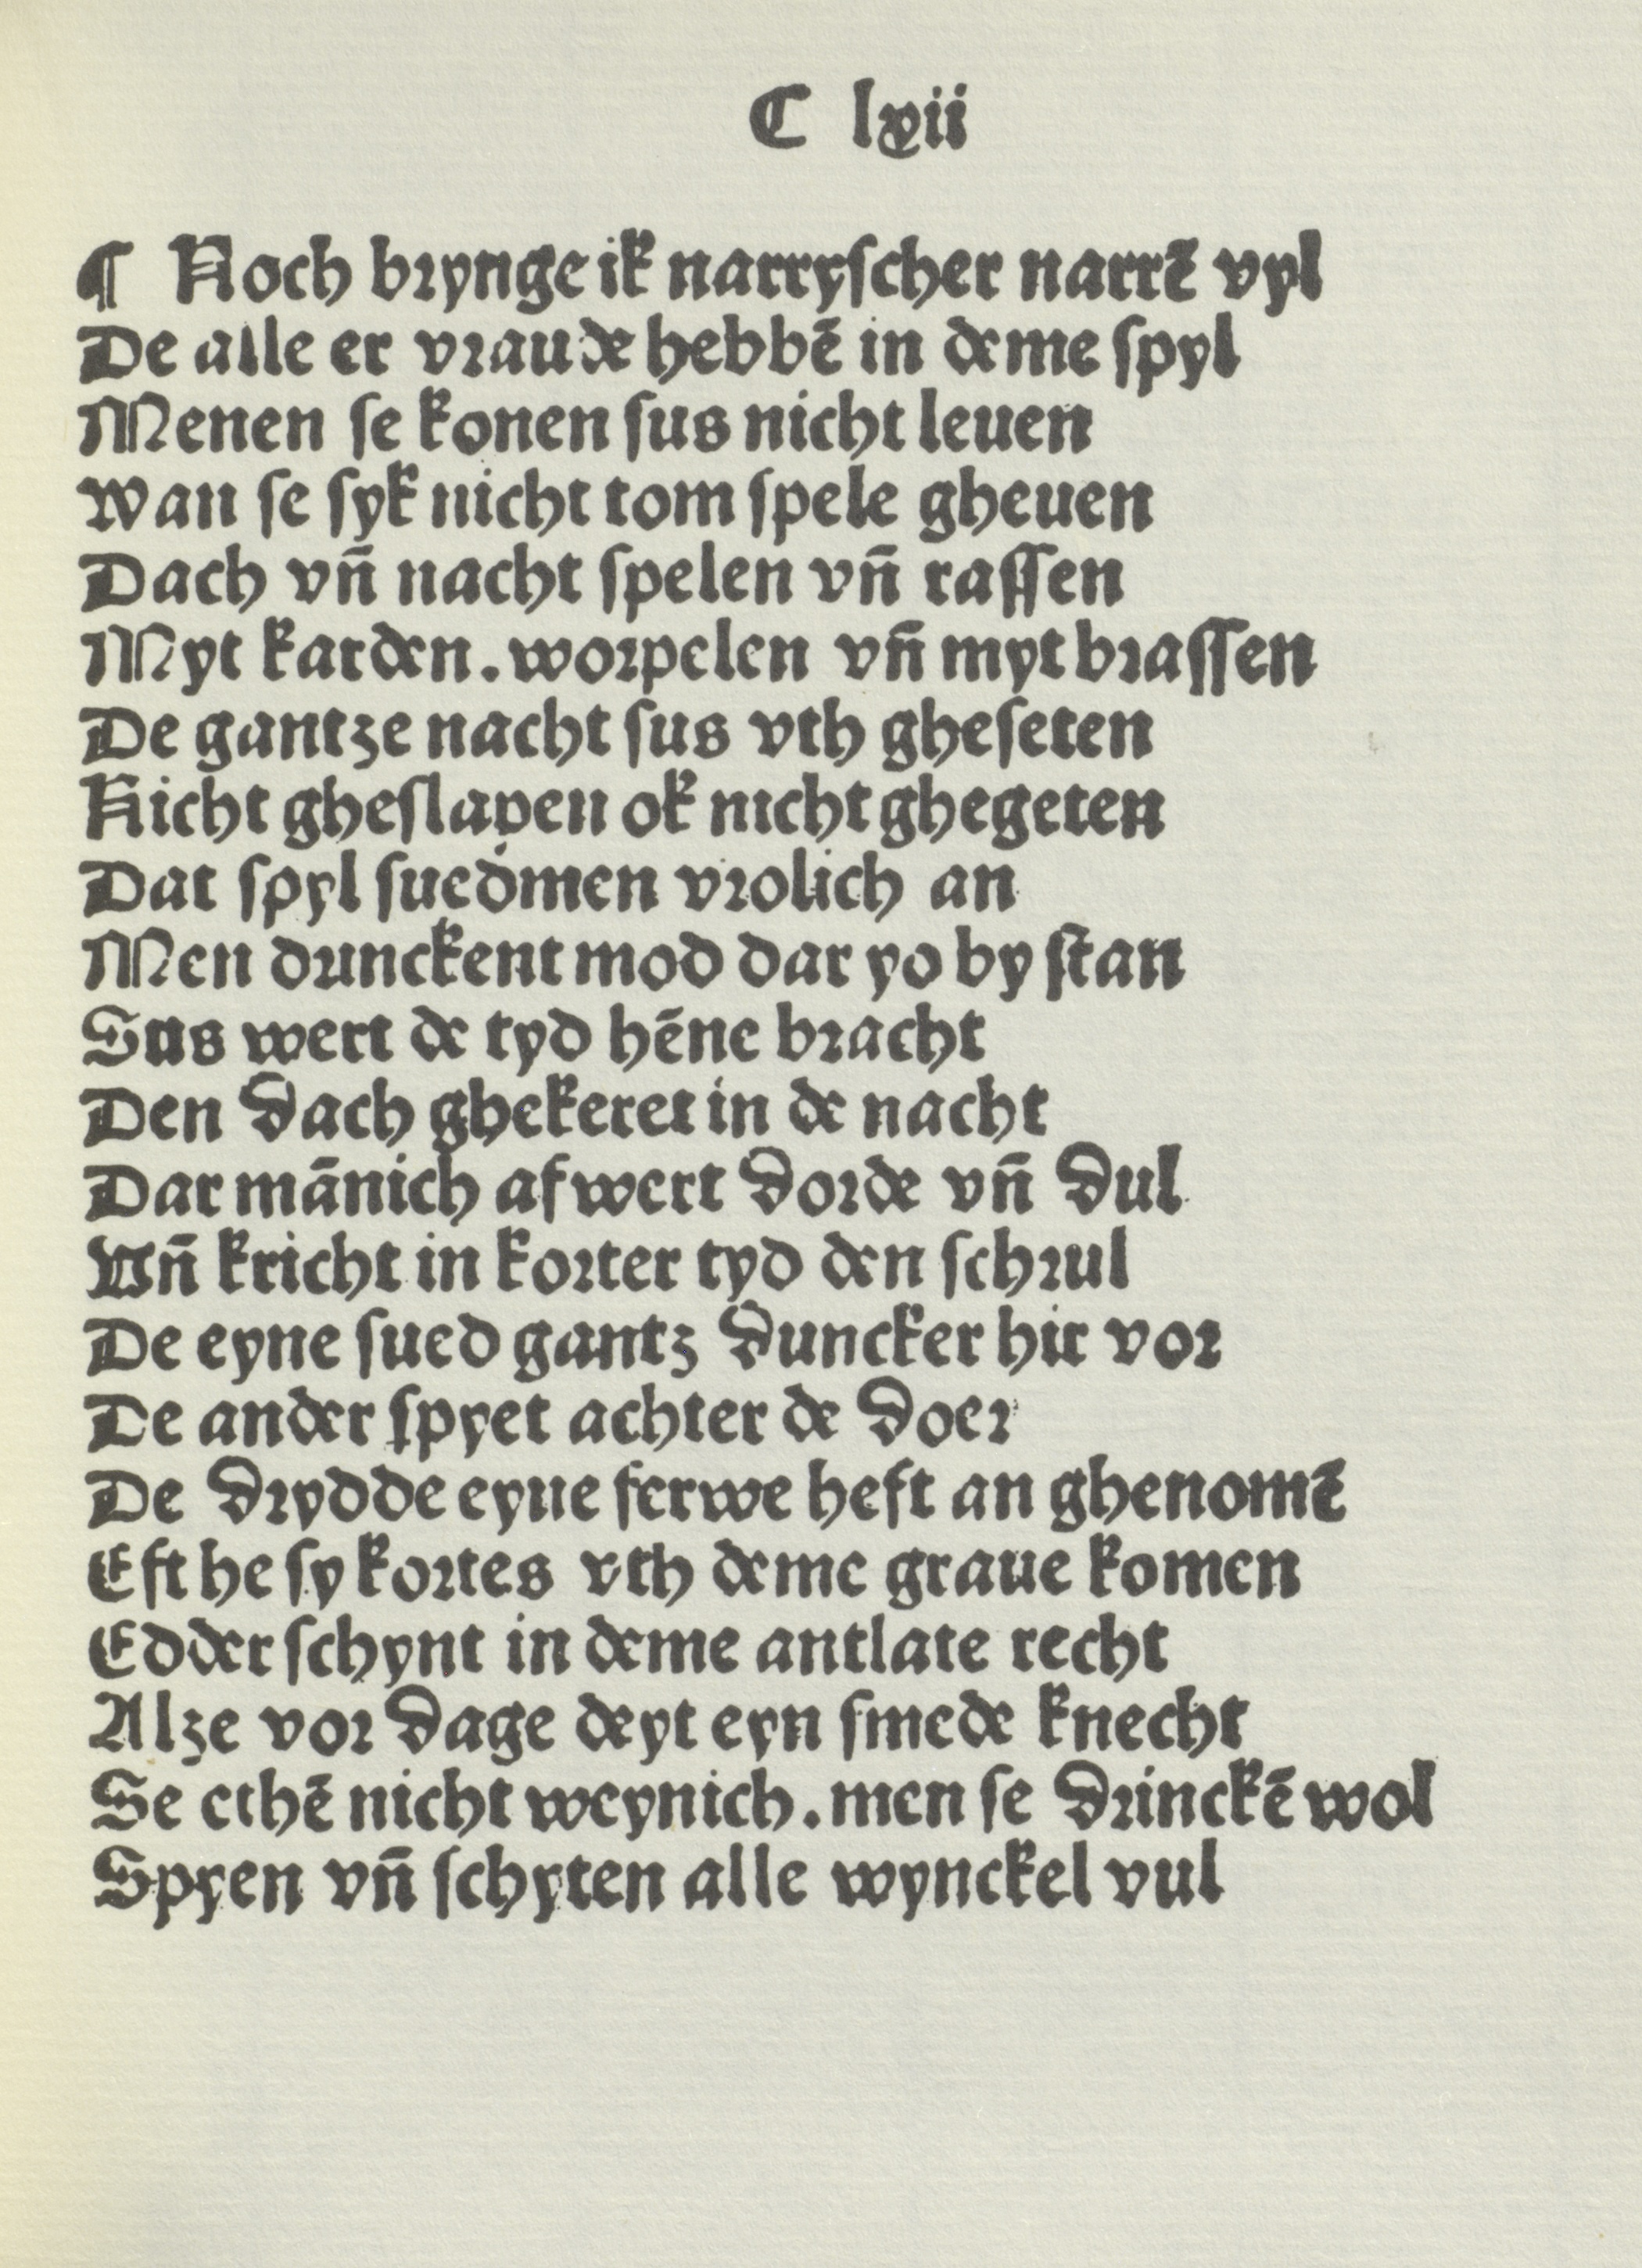 C lxii
¶ Noch brynge ik narryſcher narrē vyl
De alle er vraude hebbē in deme ſpyl
Menen ſe konen ſus nicht leuen
Wan ſe ſyk nicht tom ſpele gheuen
Dach vn̄ nacht ſpelen vn̄ raſſen
Myt karden. worpelen vn̄ myt braſſen
De gantze nacht ſus vth gheſeten
Nicht gheſlapen ok nicht ghegeten
Dat ſpyl ſuedmen vrolich an
Men drunckent mod dar yo by ſtan
Sus wert de tyd hēne bracht
Den dach ghekeret in de nacht
Dar mānich af wert dorde vn̄ dul
Vn̄ kricht in korter tyd den ſchrul
De eyne ſued gantz duncker hir vor
De ander ſpyet achter de doer
De drydde eyne ferwe heft an ghenomē
Eft he ſy kortes vth deme graue komen
Edder ſchynt in deme antlate recht
Alze vor dage deyt eyn ſmede knecht
Se ethē nicht weynich. men ſe drinckē wol
Spyen vn̄ ſchyten alle wynckel vul